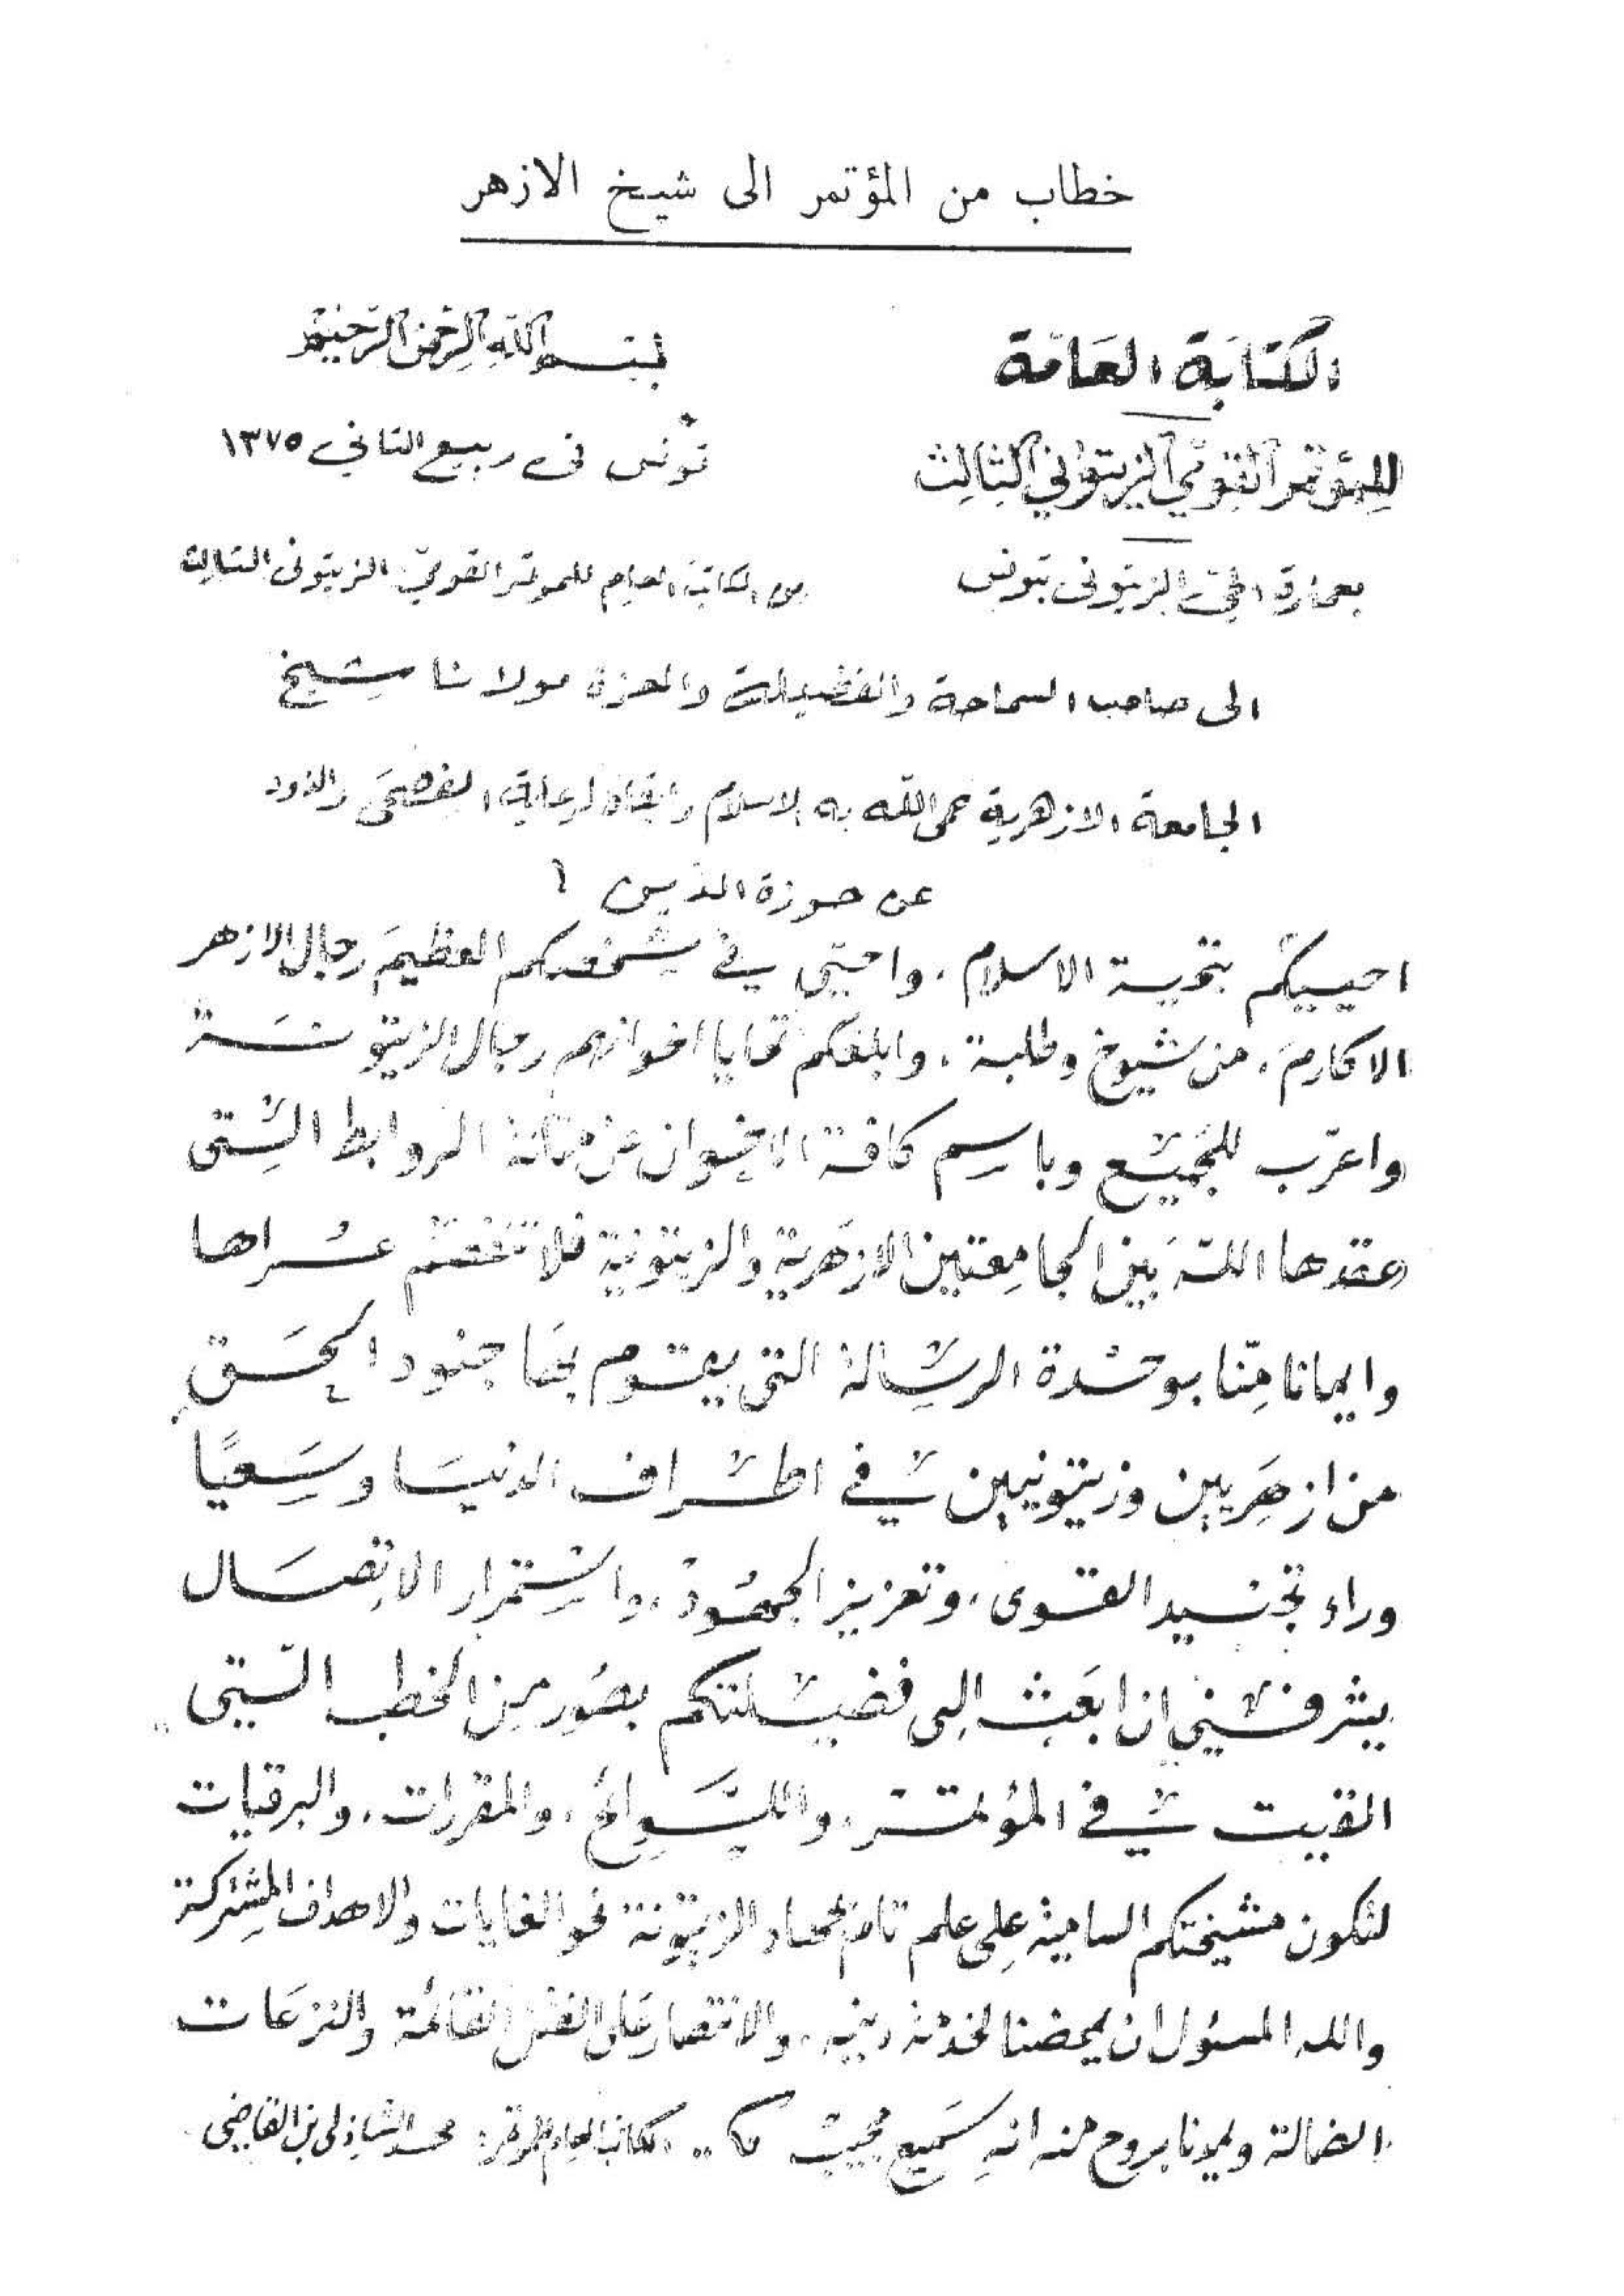 خطاب من المؤتمر الى شيخ الازهر
الكتابة العامة
للمؤتمر القومي الزيتوني الثالث
بعمارة الحي الزيتوني بتونس
بسم الله الرحمن الرحيم
تونس في ربيع الثاني ١٣٧٥
من الكاتب العام للموتمر القومي الزيتوني الثالث
الى صاحب السماحة والفضيلة والعزة مولانا شيخ
الجامعة الازهرية حمى الله به الاسلام وابقاه لرعاية الفصحى والذود
عن حوزة الدين
احييكم بتحية الاسلام، واحيي في شخصكم العظيم رجال الازهر
الاكارم، من شيوخ وطلبة، وابلغكم تحايا اخوانهم رجال الزيتونة
واعرب للجميع وباسم كافة الاخوان عن متانة الروابط التي
عقدها الله بين الجامعتين الازهرية والزيتونية فلا تنفصم عراها
وايمانا منا بوحدة الرسالة التي يقوم بها جنود الحق
من ازهريين وزيتونيين في اطراف الدنيا وسعيا
وراء تجنيد القوى، وتعزيز الجهود، واستمرار الاتصال
يشرفني ان ابعث الى فضيلتكم بصور من الخطب التي
القيت في المؤتمر، واللوائح، والمقررات، والبرقيات
لتكون مشيختكم السامية على علم تام بجهاد الزيتونة نحو الغايات والاهداف المشتركة
والله المسئول ان يمحضنا لخدمة دينه، والانتصار على الفتن القائمة والنزعات
الضالة ويمدنا بروح منه انه سميع مجيب .. الكاتب العام للموتمر: محمد الشاذلي بن القاضي